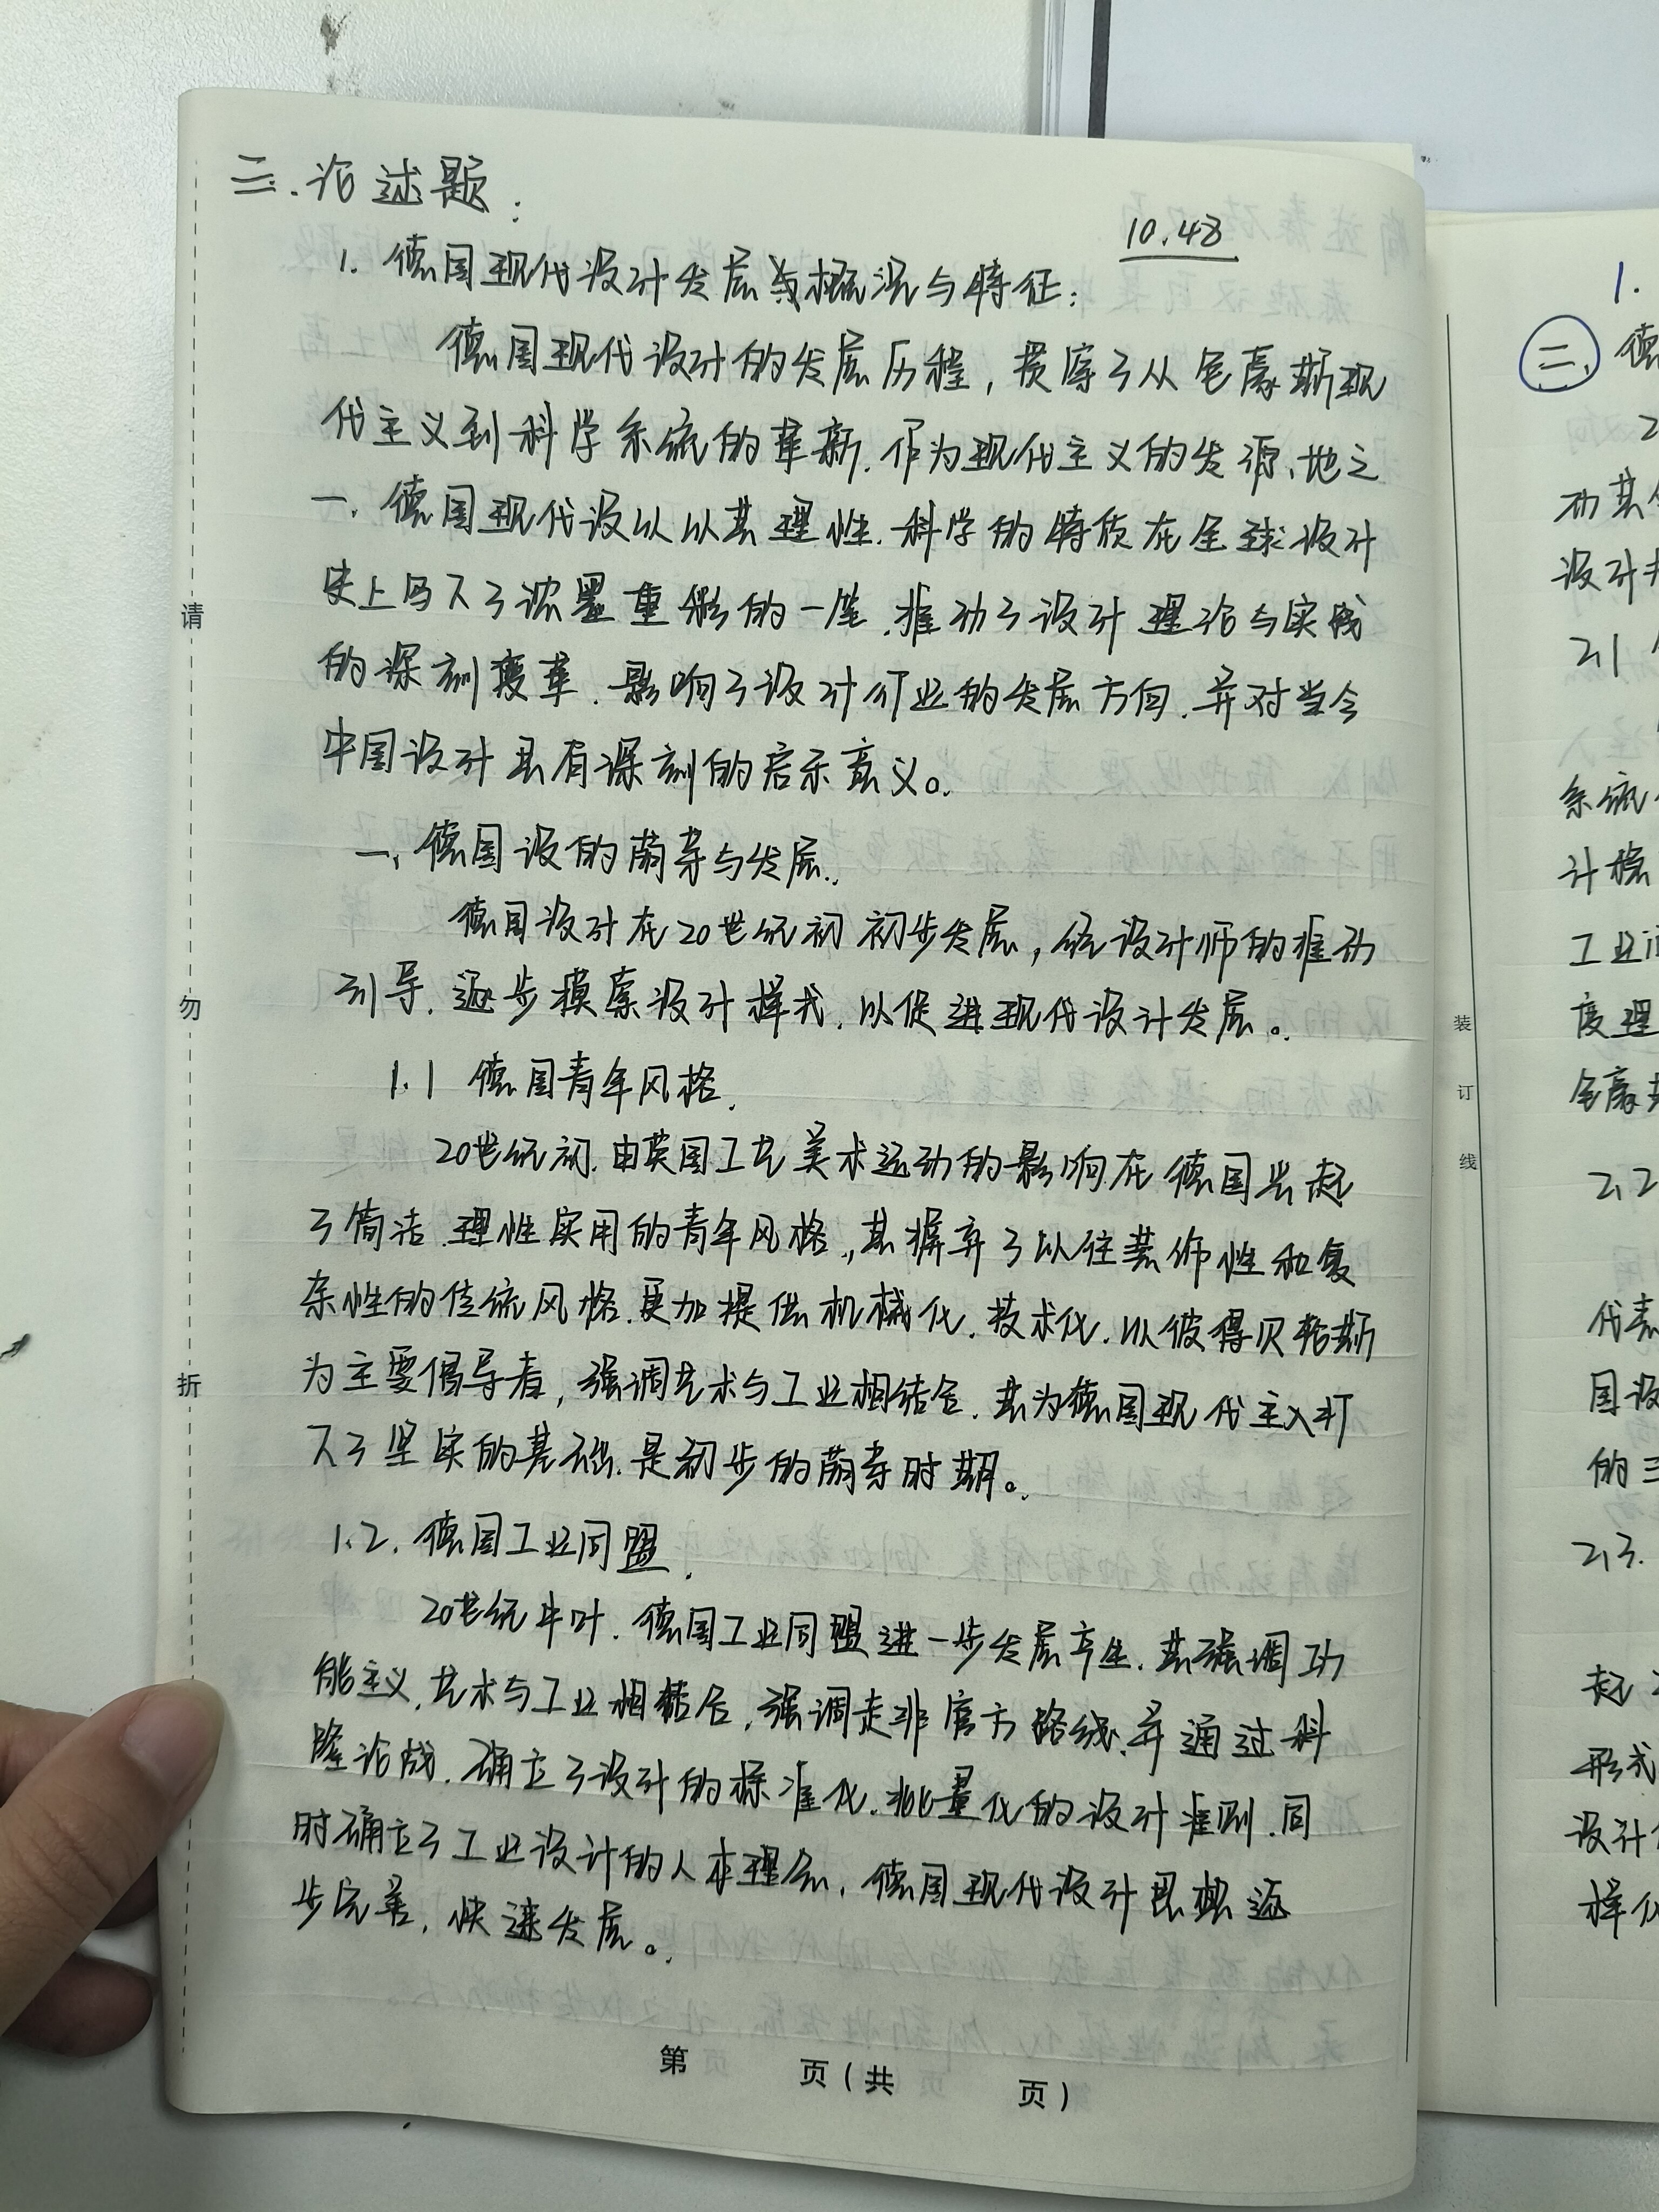 三.论述题:
10.48
1. 德国现代设计发展与概况与特征:
德国现代设计的发展历程,贯穿了从包豪斯现
代主义到科学系统的革新.作为现代主义的发源、地之
一.德国现代设以以其理性.科学的特质在全球设计
史上写下了浓墨重彩的一笔.推动了设计理论与实践
的深刻变革.影响了设计行业的发展方向.并对当今
中国设计具有深刻的启示意义。
一、德国设的萌芽与发展.
德国设计在20世纪初初步发展,经设计师的推动
引导.逐步摸索设计样式.以促进现代设计发展。
1.1 德国青年风格.
20世纪初.由英国工艺美术运动的影响在德国兴起
了简洁.理性实用的青年风格,其摒弃了以往装饰性和复
杂性的传统风格.更加提倡机械化.技术化.以彼得贝轮斯
为主要倡导者,强调艺术与工业相结合.其为德国现代主义打
下了坚实的基础.是初步的萌芽时期。
1.2.德国工业同盟.
20世纪中叶.德国工业同盟进一步发展产生.其强调功
能主义.艺术与工业相结合.强调走非官方路线.并通过科
隆论战.确立了设计的标准化.批量化的设计准则.同
时确立了工业设计的人本理念.德国现代设计思想逐
步完善,快速发展。
请
勿
折
第 页(共 页)
装
订
线
1.
二、德
设计
2.1
系统
计稳
工业
度理
包豪
2.2
代表
国设
的三
2.3.
起
形式
设计
样仪